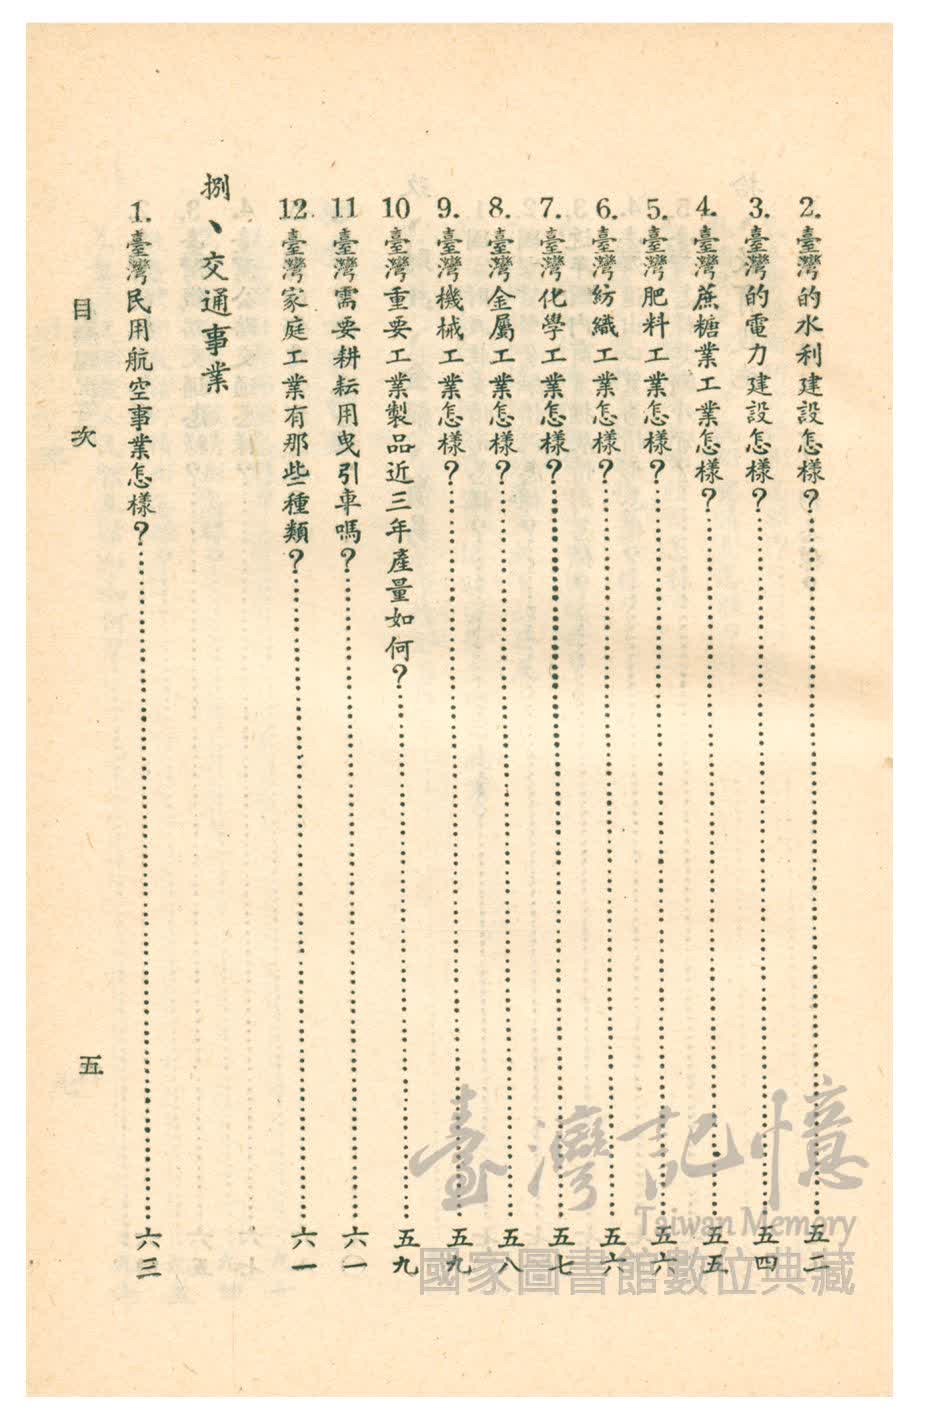 2. 臺灣的水利建設怎樣？……五二
3. 臺灣的電力建設怎樣？……五四
4. 臺灣蔗糖業工業怎樣？……五五
5. 臺灣肥料工業怎樣？……五六
6. 臺灣紡織工業怎樣？……五六
7. 臺灣化學工業怎樣？……五七
8. 臺灣金屬工業怎樣？……五八
9. 臺灣機械工業怎樣？……五九
10 臺灣重要工業製品近三年產量如何？……五九
11 臺灣需要耕耘用曳引車嗎？……六一
12. 臺灣家庭工業有那些種類？……六一
捌、交通事業
1. 臺灣民用航空事業怎樣？……六三
目次
五
臺灣記憶
Taiwan Memory
國家圖書館數位典藏